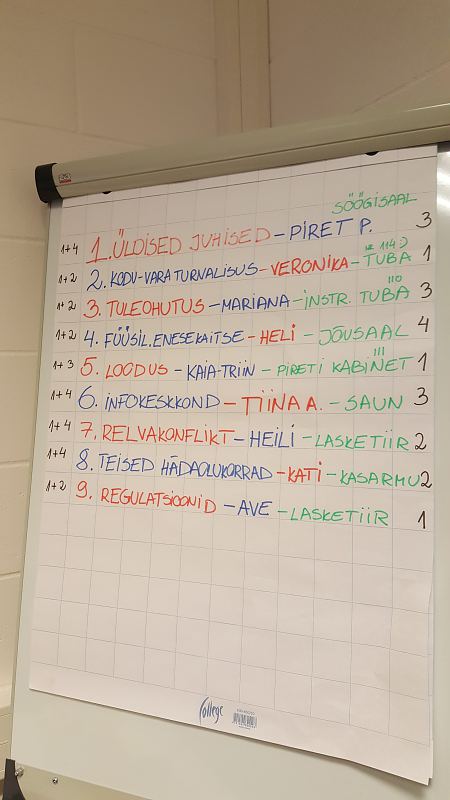 SÖÖGISAAL
1+4 1. ÜLDISED JUHISED – PIRET P. 3
1+2 2. KODU-VARA TURVALISUS – VERONIKA – TUBA 1
1+2 3. TULEOHUTUS – MARIANA – INSTR. TUBA 110 3
1+2 4. FÜÜSIL. ENESEKAITSE – HELI – JÕUSAAL 4
1+3 5. LOODUS – KAIA-TRIIN – PIRETI KABINET 111 1
1+4 6. INFOKESKKOND – TIINA A. – SAUN 3
1+4 7. RELVAKONFLIKT – HEILI – LASKETIIR 2
1+4 8. TEISED HÄDAOLUKORRAD – KATI – KASARMU 2
1+2 9. REGULATSIOONID – AVE – LASKETIIR 1
College